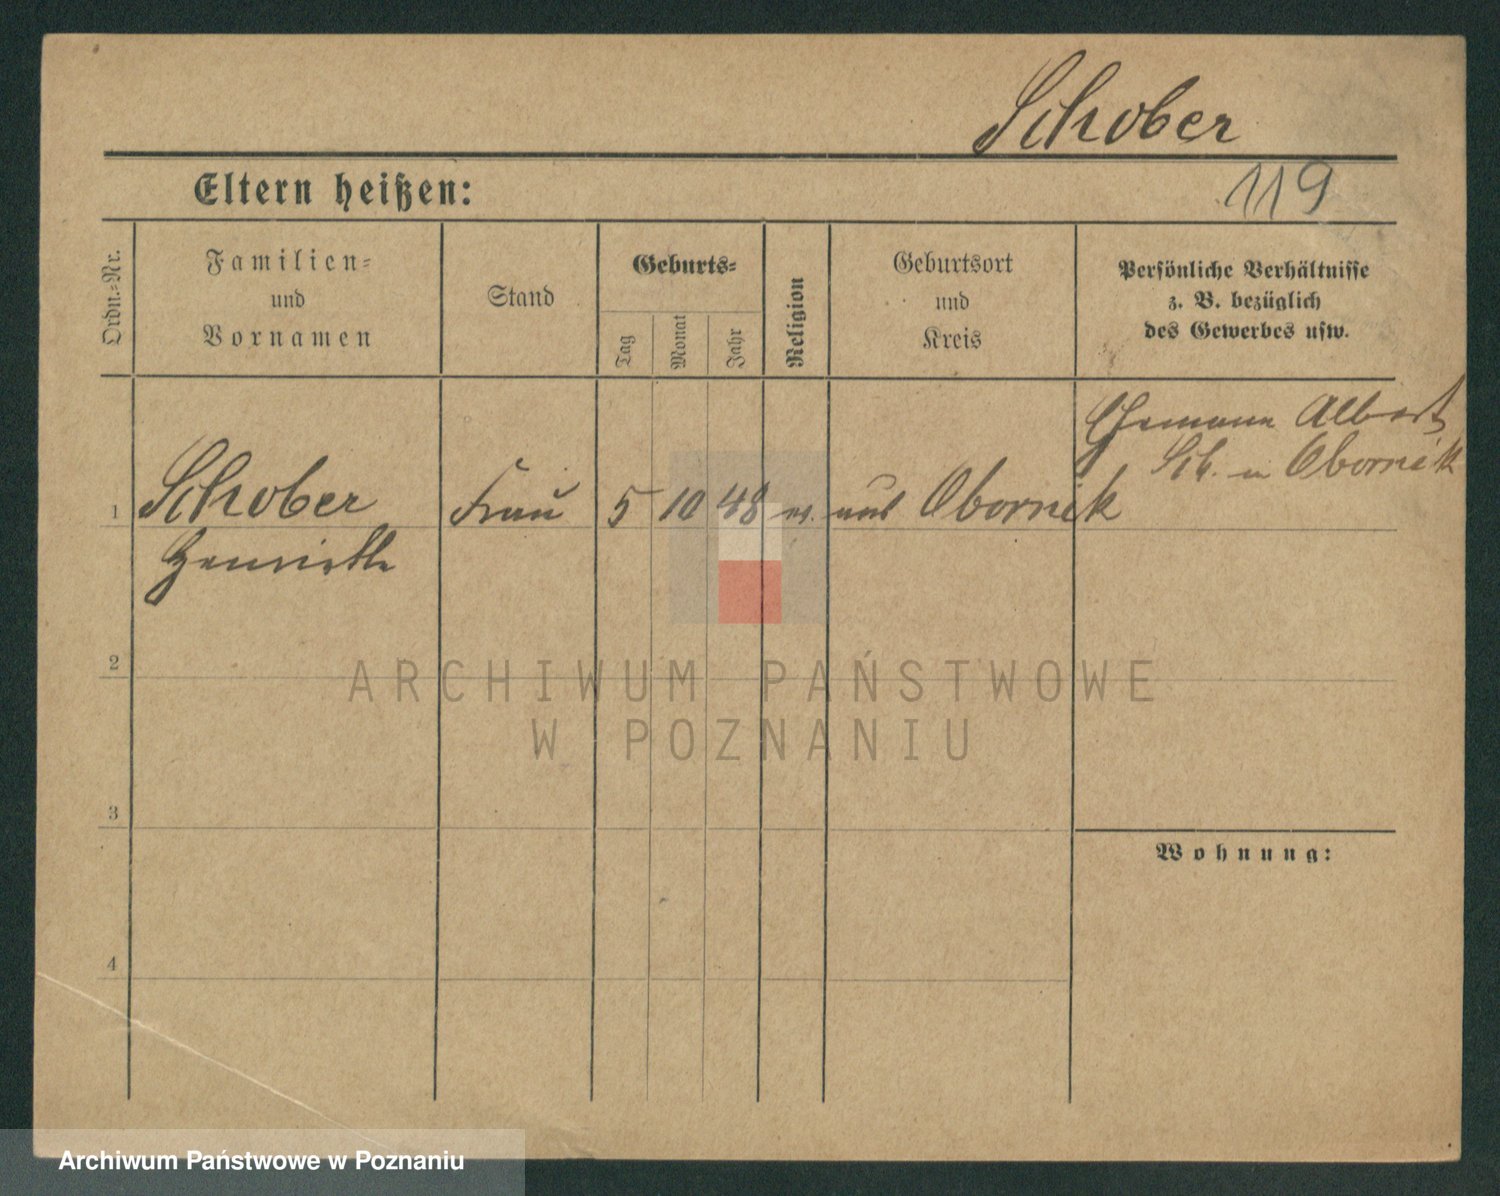 Schober
119
Eltern heißen:
Ordn.=Nr.
Familien=
und
Vornamen
Stand
Geburts=
Tag
Monat
Jahr
Religion
Geburtsort
und
Kreis
Persönliche Verhältnisse
z. B. bezüglich
des Gewerbes usw.
Ehemann Albert
Sch. in Obornik
1 Schober Frau 5 10 48 ev. aus Obornik
Henriette
2
3
4
Wohnung:
ARCHIWUM PAŃSTWOWE
W POZNANIU
Archiwum Państwowe w Poznaniu